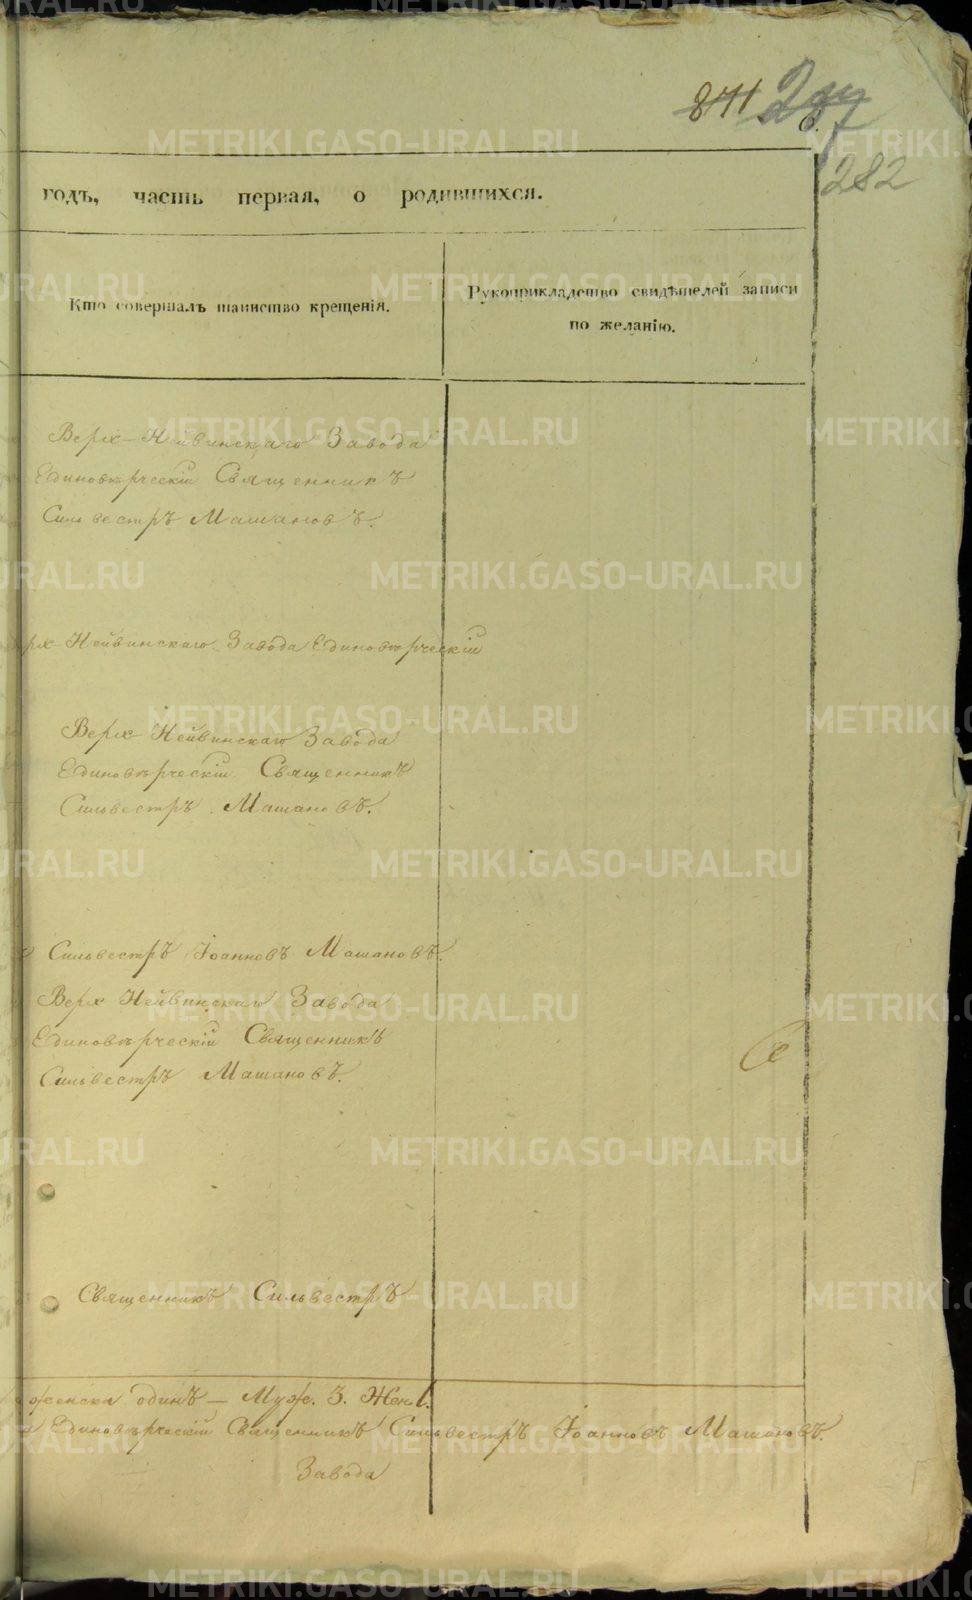 871
282
годъ, часть первая, о родившихся.
Кто совершалъ таинство крещенія.
Рукоприкладство свидѣтелей записи
по желанію.
Верх-Нейвинскаго Завода
Единовѣрческій Священникъ
Сильвестръ Машановъ.
рх-Нейвинскаго Завода Единовѣрческій
Верх-Нейвинскаго Завода
Единовѣрческій Священникъ
Сильвестръ Машановъ.
Сильвестръ Іоанновъ Машановъ.
Верх Нейвинскаго Завода
Единовѣрческій Священникъ
Сильвестръ Машановъ.
Священникъ Сильвестръ
женска одинъ — Муж. 3. Жен 1.
Единовѣрческій Священникъ Сильвестръ Іоанновъ Машановъ.
Завода
METRIKI.GASO-URAL.RU